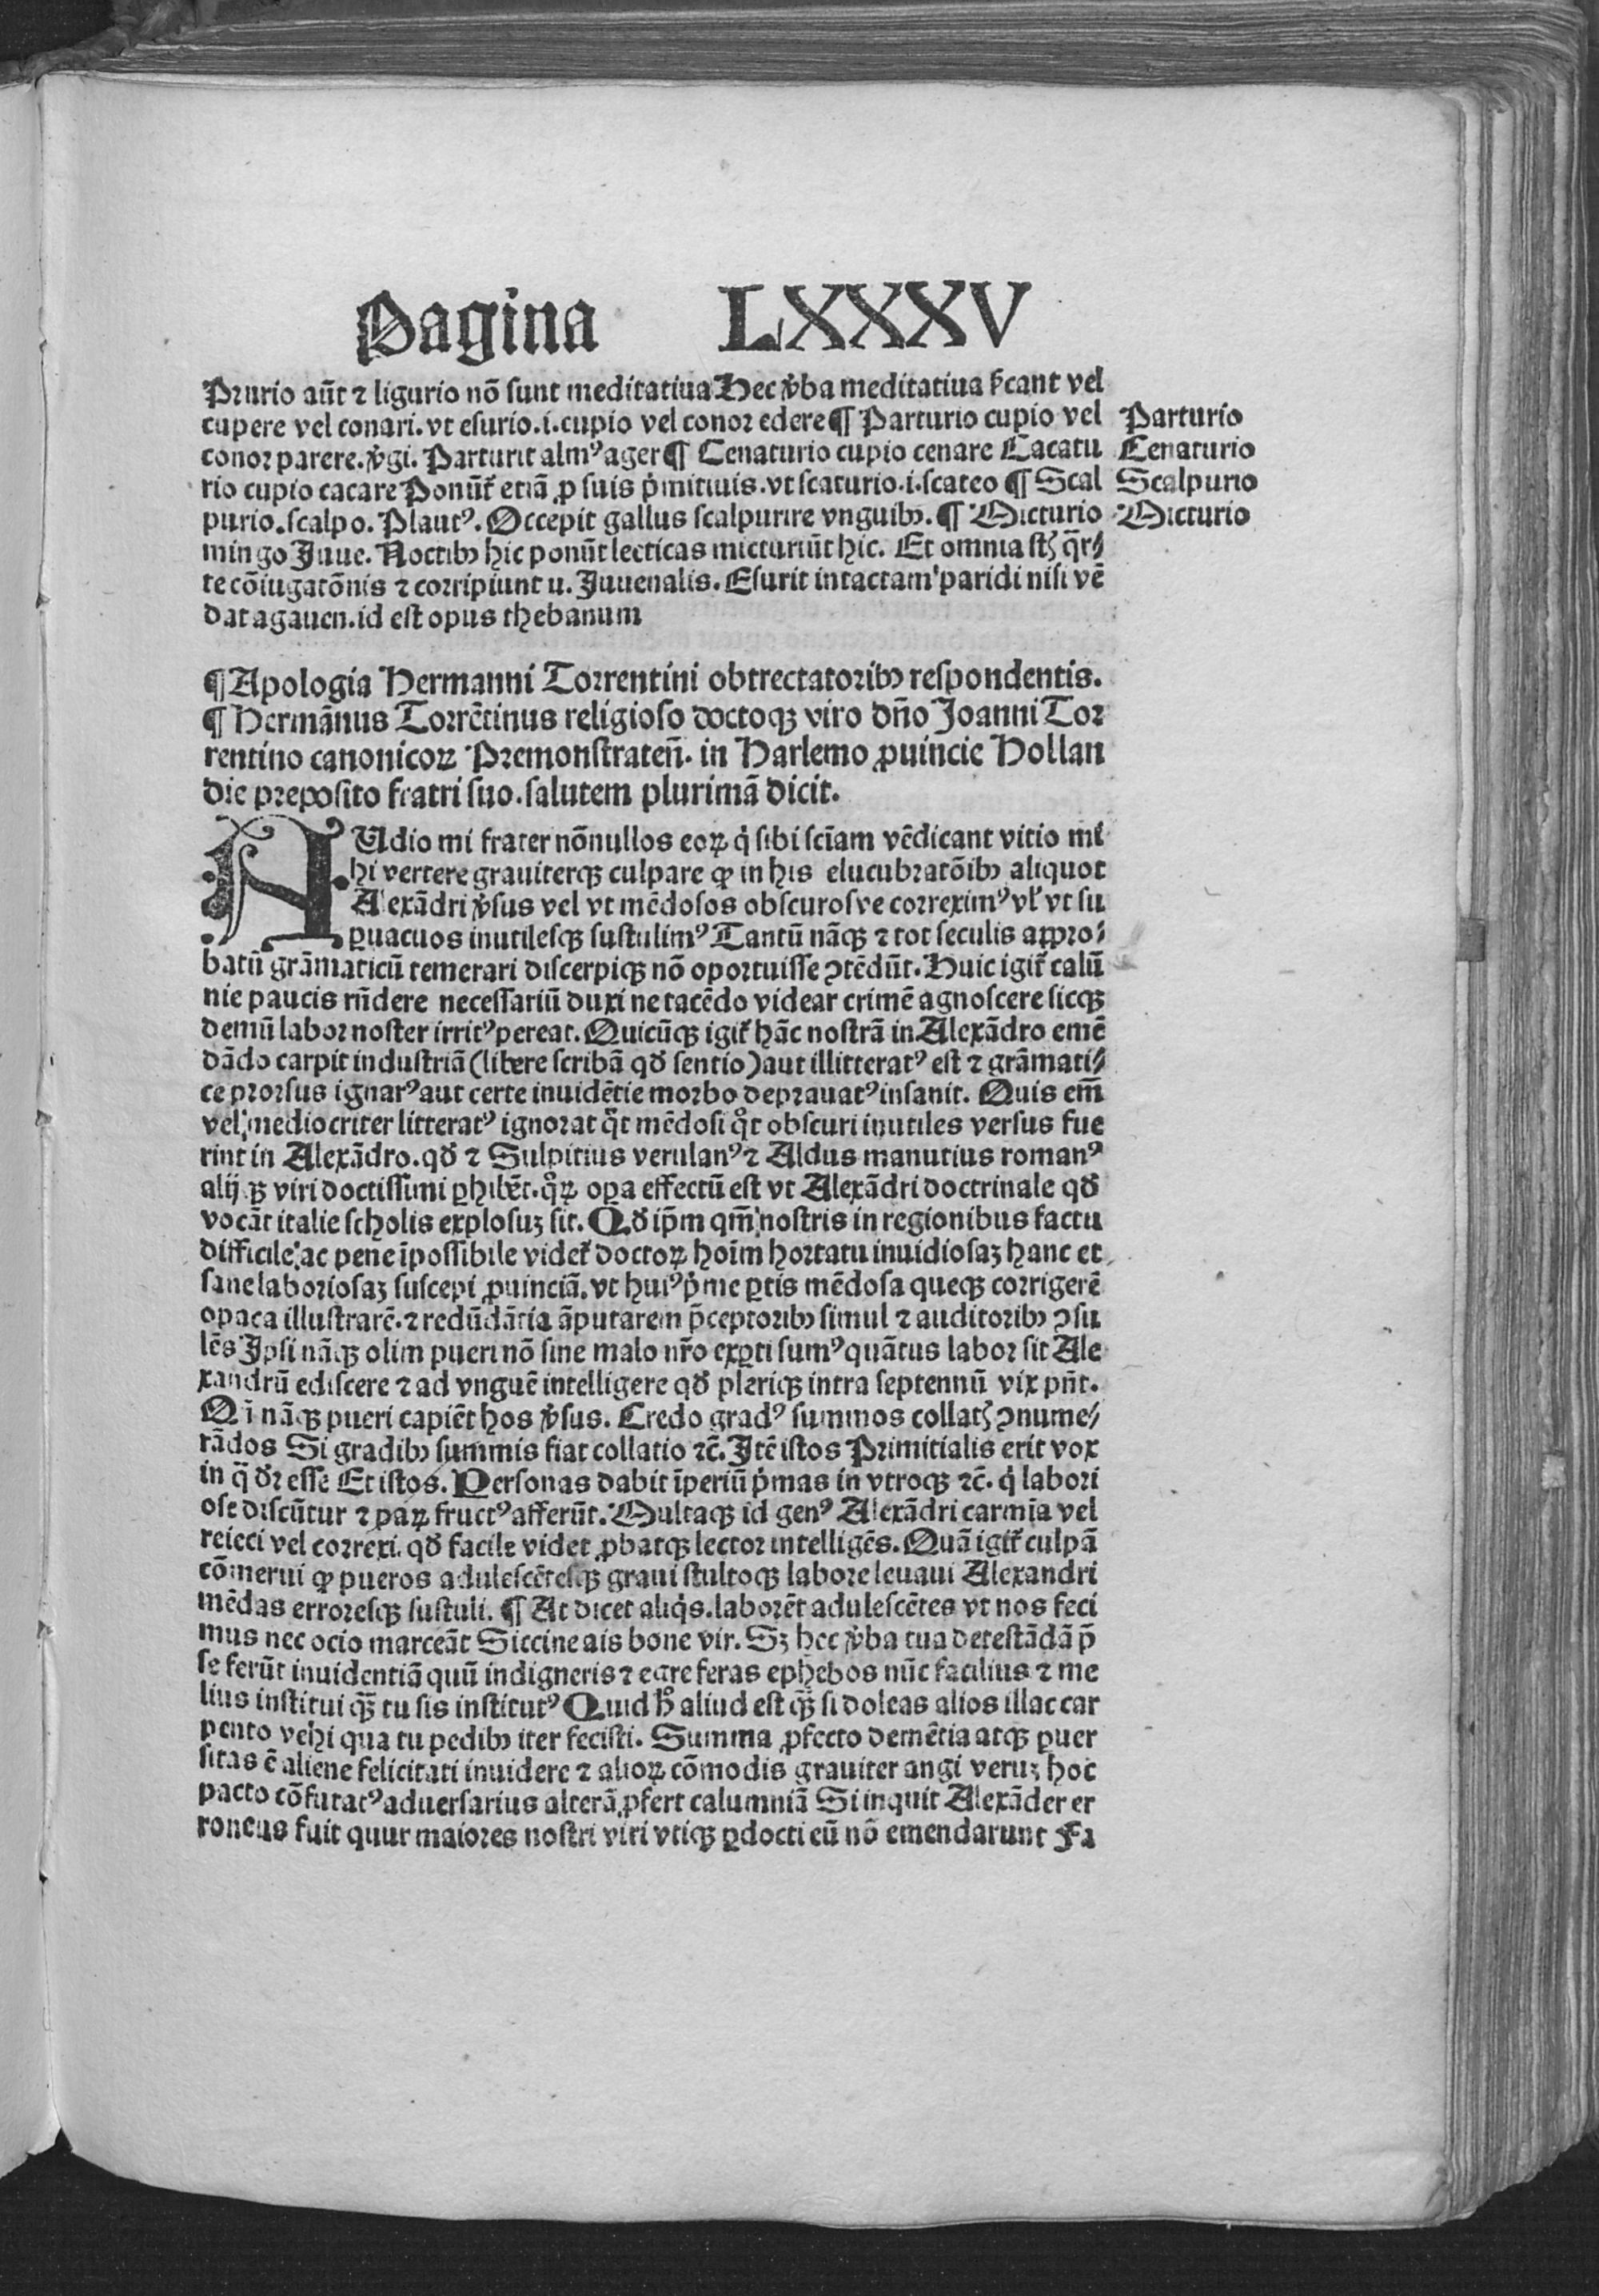 Pagina LXXXV
Prurio aūt ⁊ ligurio nō sunt meditatiua Hec v̾ba meditatiua ſ̕cant vel
cupere vel conari. vt esurio .i. cupio vel conor edere ¶ Parturio cupio vel
Parturio
conor parere. v̾gi. Parturit almꝰ ager ¶ Cenaturio cupio cenare Cacatu
Cenaturio
rio cupio cacare Ponūt᷑ etiā ꝓ suis pͥmitiuis. vt scaturio .i. scateo ¶ Scal
Scalpurio
purio. scalpo. Plautꝰ. Occepit gallus scalpurire vnguibꝫ. ¶ Micturio
Micturio
mingo Juue. Noctibꝫ hic ponūt lecticas micturiūt hic. Et omnia st̄ q̄r⸗
te cōiugatōnis ⁊ corripiunt u. Juuenalis. Esurit intactam paridi nisi vē
dat agauen. id est opus thebanum
¶ Apologia Hermanni Torrentini obtrectatoribꝫ respondentis.
¶ Hermānus Torrētinus religioso doctoqꝫ viro dn̄o Joanni Tor
rentino canonicoꝝ Premonstrateñ. in Harlemo ꝓuincie Hollan
die preposito fratri suo. salutem plurimā dicit.
AUdio mi frater nōnullos eoꝝ qͥ sibi sciam̄ vēdicant vitio mi
hi vertere grauiterqꝫ culpare ꝙ in his elucubratōibꝫ aliquot
Alexādri v̾sus vel vt mēdosos obscurosve correximꝰ vl̕ vt su
ꝑuacuos inutilesqꝫ sustulimꝰ Tantū nāqꝫ ⁊ tot seculis appro⸗
batū grāmaticū temerari discerpiqꝫ nō oportuisse ꝯtēdūt. Huic igit᷑ calū
nie paucis rn̄dere necessariū duxi ne tacēdo videar crimē agnoscere sicqꝫ
demū labor noster irritꝰ pereat. Quicūqꝫ igit᷑ hāc nostrā in Alexādro emē
dādo carpit industriā (libere scribā qd̕ sentio) aut illitteratꝰ est ⁊ grāmati⸗
ce prorsus ignarꝰ aut certe inuidētie morbo deprauatꝰ insanit. Quis em̄
vel mediocriter litteratꝰ ignorat qͣ̄t mēdosi qͣ̄t obscuri inutiles versus fue
rint in Alexādro. qd̕ ⁊ Sulpitius verulanꝰ ⁊ Aldus manutius romanꝰ
alij qꝫ viri doctissimi ꝑhibēt. qͦꝝ oꝑa effectū est vt Alexādri doctrinale qd̕
vocāt italie scholis explosuꝫ sit. Qd̕ ip̄m qm̄ nostris in regionibus factu
difficile ac pene īpossibile videt᷑ doctoꝝ hoīm hortatu inuidiosaꝫ hanc et
sane laboriosaꝫ suscepi ꝓuinciā. vt huiꝰ pͥme ꝑtis mēdosa queqꝫ corrigerē
opaca illustrarē. ⁊ redūdātia āputarem p̄ceptoribꝫ simul ⁊ auditoribꝫ ꝯsu
lēs Jpsi nāqꝫ olim pueri nō sine malo nr̄o exꝑti sumꝰ quātus labor sit Ale
xandrū ediscere ⁊ ad vnguē intelligere qd̕ pleriqꝫ intra septennū vix pn̄t.
Qī nāqꝫ pueri capiēt hos v̾sus. Credo gradꝰ summos collat̄ ꝯnume⸗
rādos Si gradibꝫ summis fiat collatio ⁊c̄. Jtē istos Primitialis erit vox
in q̄ dr̄ esse Et istos. Personas dabit īperiū pͥmas in vtroqꝫ ⁊c̄. qͥ labori
ose discūtur ⁊ paꝝ fructꝰ afferūt. Multaqꝫ id genꝰ Alexādri carmīa vel
reieci vel correxi. qd̕ facile videt ꝓbatqꝫ lector intelligēs. Quā igit᷑ culpā
cōmerui ꝙ pueros adulescētesqꝫ graui stultoqꝫ labore leuaui Alexandri
mēdas erroresqꝫ sustuli. ¶ At dicet aliqͥs. laborēt adulescētes vt nos feci
mus nec ocio marceāt Siccine ais bone vir. Sꝫ hec v̾ba tua detestādā p̄
se ferūt inuidentiā quū indigneris ⁊ egre feras ephebos nūc facilius ⁊ me
lius institui qꝫ̄ tu sis institutꝰ Quid hͦ aliud est qꝫ̄ si doleas alios illac car
pento vehi qua tu pedibꝫ iter fecisti. Summa ꝓfecto demētia atqꝫ ꝑuer
sitas ē aliene felicitati inuidere ⁊ alioꝝ cōmodis grauiter angi veruꝫ hoc
pacto cōfutatꝰ aduersarius alterā ꝓfert calumniā Si inquit Alexāder er
roneus fuit quur maiores nostri viri vtiqꝫ ꝑdocti eū nō emendarunt Fa